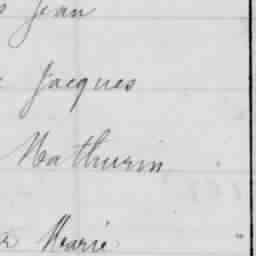 Jean
Jacques
Mathurin
Marie